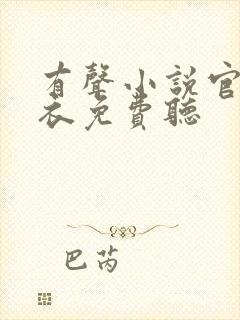 有聲小說官
衣免費聽
巴芮